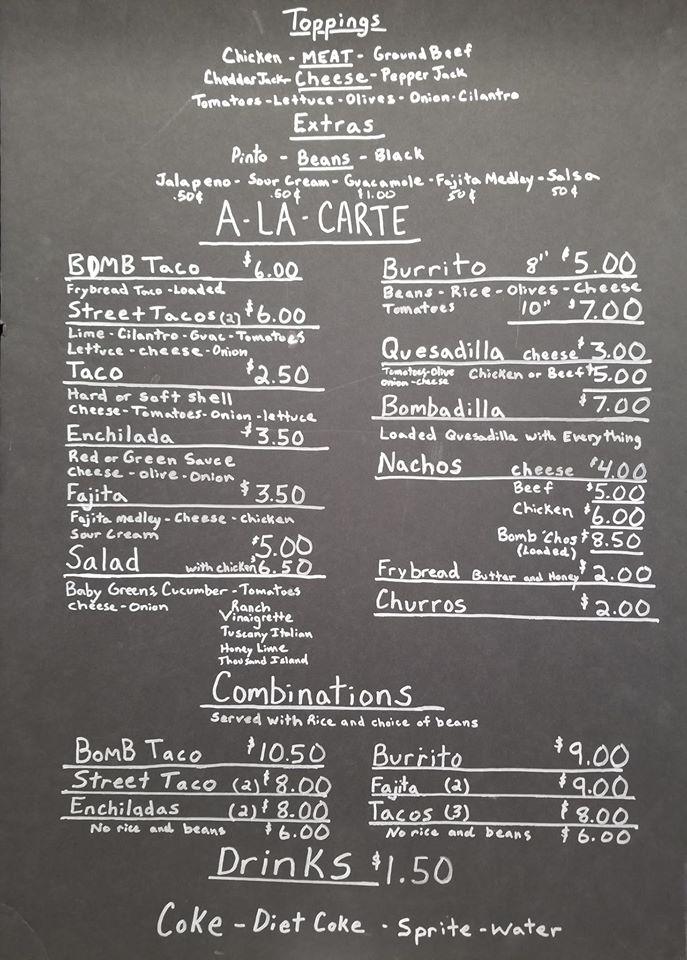 Toppings
Chicken - MEAT - Ground Beef
Cheddar Jack - Cheese - Pepper Jack
Tomatoes - Lettuce - Olives - Onion - Cilantro
Extras
Pinto - Beans - Black
Jalapeno - Sour Cream - Guacamole - Fajita Medley - Salsa
.50¢ .50¢ $1.00 50¢ 50¢
A-LA-CARTE
BOMB Taco $6.00
Frybread Taco - Loaded
Street Tacos (2) $6.00
Lime - Cilantro - Guac - Tomatoes
Lettuce - cheese - Onion
Taco $2.50
Hard or soft shell
Cheese - Tomatoes - Onion - lettuce
Enchilada $3.50
Red or Green Sauce
Cheese - olive - Onion
Fajita $3.50
Fajita medley - Cheese - chicken
Sour Cream
Salad $5.00
with chicken $6.50
Baby Greens, Cucumber - Tomatoes
cheese - Onion
Ranch
Vinaigrette
Tuscany Italian
Honey Lime
Thousand Island
Burrito 8" $5.00
Beans - Rice - Olives - Cheese
Tomatoes 10" $7.00
Quesadilla cheese $3.00
Tomatoes - Olive
onion - cheese
Chicken or Beef $5.00
Bombadilla $7.00
Loaded Quesadilla with Everything
Nachos cheese $4.00
Beef $5.00
Chicken $6.00
Bomb 'Chos $8.50
(Loaded)
Frybread Butter and Honey $2.00
Churros $2.00
Combinations
Served with Rice and choice of beans
BomB Taco $10.50
Street Taco (2) $8.00
Enchiladas (2) $8.00
No rice and beans $6.00
Burrito $9.00
Fajita (2) $9.00
Tacos (3) $8.00
No rice and beans $6.00
Drinks $1.50
Coke - Diet Coke - Sprite - Water